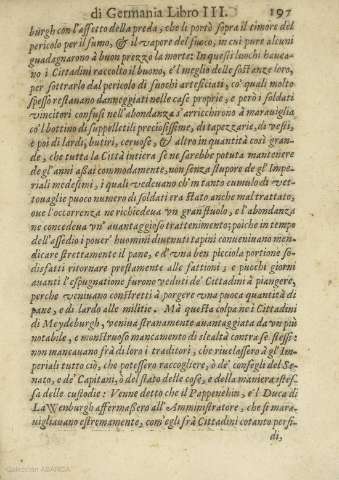 di Germania Libro III. 197
burgh con l'assetto della preda, che li portò sopra il timore del
pericolo per il fumo, & il vapore del fuoco, in cui pure alcuni
guadagnarono à buon prezzo la morte: In questi luochi haueano
i Cittadini raccolto il buono, e'l meglio delle sostanze loro,
per sottrarlo dal pericolo di fuochi artificiati, co' quali molto
spesso restauano danneggiati nelle case proprie, e però i soldati
vincitori confusi nell'abondanza s'arricchirono à marauiglia
co'l bottino di suppellettili preciosissime, di tapezzarie, di vesti,
e poi di lardi, butiri, ceruose, & altro in quantità così grande,
che tutta la Città intiera se ne sarebbe potuta mantenere
de gl'anni assai commodamente, non senza stupore de gl'Imperiali
medesimi, i quali vedeuano ch'in tanto cumulo di vettouaglie
puoco numero di soldati era stato anche mal trattato,
oue l'occorrenza ne richiedeua vn gran stuolo, e l'abondanza
ne concedeua vn' auantaggioso trattenimento; poiche in tempo
dell'assedio i pouer' huomini diuenuti tapini conueniuano mendicare
strettamente il pane, e d'vna ben picciola portione sodisfatti
ritornare prestamente alle fattioni; e puochi giorni
auanti l'espugnatione furono veduti de' Cittadini à piangere,
perche veniuano constretti à porgere vna puoca quantità di
pane, e di lardo alle militie. Mà questa colpa ne i Cittadini
di Meydeburgh, veniua stranamente auantaggiata da vn più
notabile, e monstruoso mancamento di slealtà contra se stesse:
non mancauano frà di loro i traditori, che riuelassero à gl'Imperiali
tutto ciò, che potessero raccogliere, ò de' consegli del Senato,
e de' Capitani, ò del stato delle cose, e della maniera istessa
delle custodie: Venne detto che il Pappenehin, e'l Duca di
LaWenburgh affermassero all'Amministratore, che si marauigliauano
estremamente, com'egli frà Cittadini cotanto perfidi,